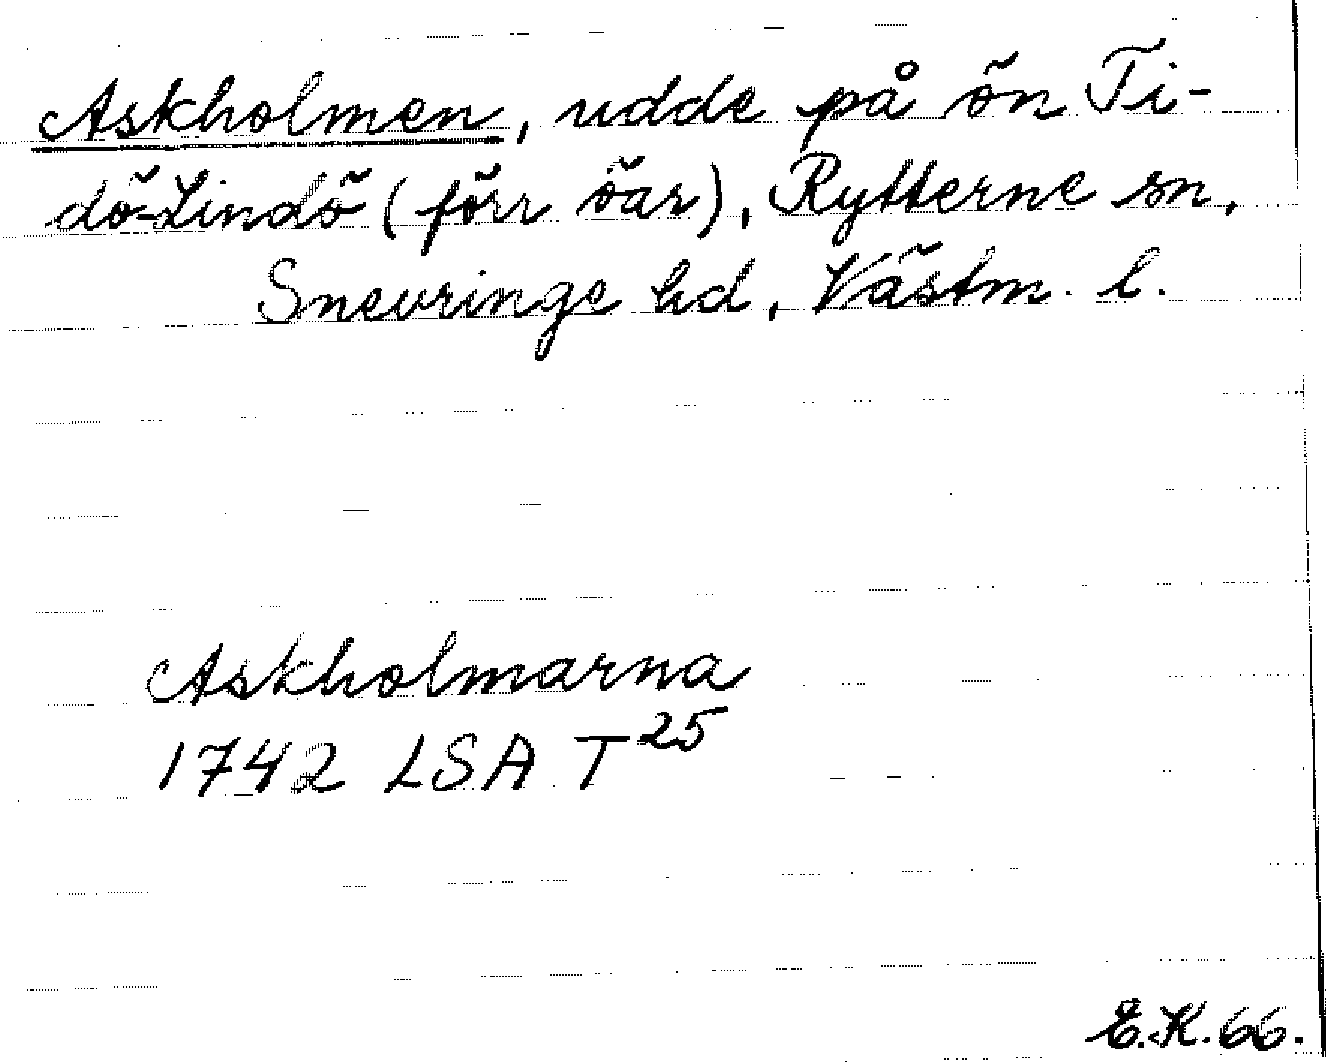 Askholmen, udde på ön Ti-
dö-Lindö (förr öar), Rytterne sn,
Snevringe hd, Västm. l.
Askholmarna
1742 LSA T 25
E.K. 66.